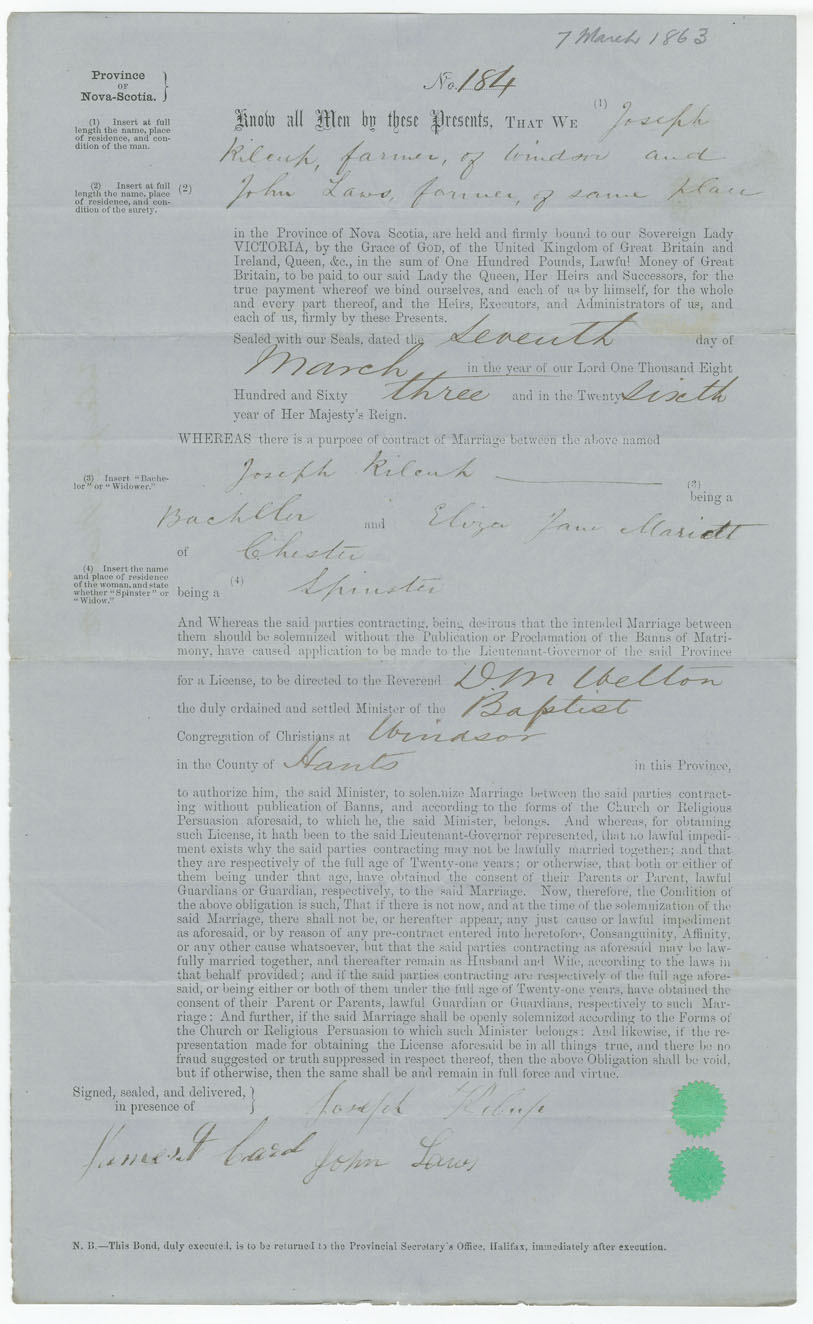 7 March 1863
Province
OF
Nova-Scotia.
No. 184
(1) Insert at full
length the name, place
of residence, and con-
dition of the man.
Know all Men by these Presents, THAT WE (1) Joseph
Kilcup, farmer, of Windsor and
(2) Insert at full
length the name, place
of residence, and con-
dition of the surety.
(2) John Laws, farmer, of same place
in the Province of Nova Scotia, are held and firmly bound to our Sovereign Lady
VICTORIA, by the Grace of GOD, of the United Kingdom of Great Britain and
Ireland, Queen, &c., in the sum of One Hundred Pounds, Lawful Money of Great
Britain, to be paid to our said Lady the Queen, Her Heirs and Successors, for the
true payment whereof we bind ourselves, and each of us by himself, for the whole
and every part thereof, and the Heirs, Executors, and Administrators of us, and
each of us, firmly by these Presents.
Sealed with our Seals, dated the seventh day of
March in the year of our Lord One Thousand Eight
Hundred and Sixty three and in the Twenty sixth
year of Her Majesty's Reign.
WHEREAS there is a purpose of contract of Marriage between the above named
(3) Insert "Bache-
lor" or "Widower."
Joseph Kilcup (3)
being a
Bachller and Eliza Jane Mariett
of Chester
(4) Insert the name
and place of residence
of the woman, and state
whether "Spinster" or
"Widow."
being a (4) Spinster
And Whereas the said parties contracting, being desirous that the intended Marriage between
them should be solemnized without the Publication or Proclamation of the Banns of Matri-
mony, have caused application to be made to the Lieutenant-Governor of the said Province
for a License, to be directed to the Reverend D M Welton
the duly ordained and settled Minister of the Baptist
Congregation of Christians at Windsor
in the County of Hants in this Province,
to authorize him, the said Minister, to solemnize Marriage between the said parties contract-
ing without publication of Banns, and according to the forms of the Church or Religious
Persuasion aforesaid, to which he, the said Minister, belongs. And whereas, for obtaining
such License, it hath been to the said Lieutenant-Governor represented, that no lawful impedi-
ment exists why the said parties contracting may not be lawfully married together; and that
they are respectively of the full age of Twenty-one years; or otherwise, that both or either of
them being under that age, have obtained the consent of their Parents or Parent, lawful
Guardians or Guardian, respectively, to the said Marriage. Now, therefore, the Condition of
the above obligation is such, That if there is not now, and at the time of the solemnization of the
said Marriage, there shall not be, or hereafter appear, any just cause or lawful impediment
as aforesaid, or by reason of any pre-contract entered into heretofore, Consanguinity, Affinity,
or any other cause whatsoever, but that the said parties contracting as aforesaid may be law-
fully married together, and thereafter remain as Husband and Wife, according to the laws in
that behalf provided; and if the said parties contracting are respectively of the full age afore-
said, or being either or both of them under the full age of Twenty-one years, have obtained the
consent of their Parent or Parents, lawful Guardian or Guardians, respectively to such Mar-
riage: And further, if the said Marriage shall be openly solemnized according to the Forms of
the Church or Religious Persuasion to which such Minister belongs: And likewise, if the re-
presentation made for obtaining the License aforesaid be in all things true, and there be no
fraud suggested or truth suppressed in respect thereof, then the above Obligation shall be void,
but if otherwise, then the same shall be and remain in full force and virtue.
Signed, sealed, and delivered,
in presence of
Joseph Kilcup
Card John Laws
N. B.—This Bond, duly executed, is to be returned to the Provincial Secretary's Office, Halifax, immediately after execution.